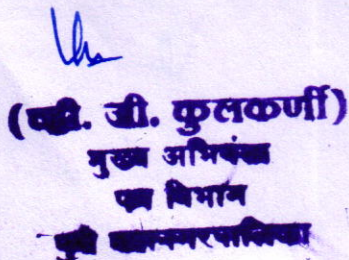 (व्ही. जी. कुलकर्णी)
मुख्य अभियंता
पथ विभाग
पुणे महानगरपालिका